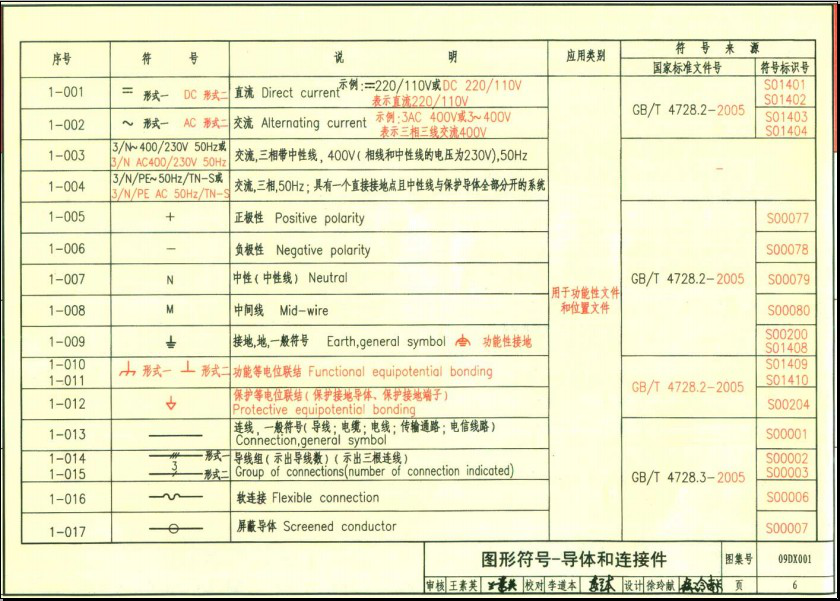 序号 符号 说明 应用类别 符号来源
国家标准文件号 符号标识号
1-001 形式一 DC 形式二 直流 Direct current 示例:⎓220/110V或DC 220/110V
表示直流220/110V
S01401
S01402
1-002 ~ 形式一 AC 形式二 交流 Alternating current 示例:3AC 400V或3~400V
表示三相三线交流400V
GB/T 4728.2-2005
S01403
S01404
1-003 3/N~400/230V 50Hz或
3/N AC400/230V 50Hz
交流,三相带中性线,400V(相线和中性线的电压为230V),50Hz
1-004 3/N/PE~50Hz/TN-S或
3/N/PE AC 50Hz/TN-S
交流,三相,50Hz;具有一个直接接地点且中性线与保护导体全部分开的系统
–
1-005 + 正极性 Positive polarity S00077
1-006 − 负极性 Negative polarity S00078
1-007 N 中性(中性线) Neutral GB/T 4728.2-2005 S00079
1-008 M 中间线 Mid-wire S00080
用于功能性文件
和位置文件
1-009 接地,地,一般符号 Earth,general symbol 功能性接地 S00200
S01408
1-010
1-011
形式一 形式二 功能等电位联结 Functional equipotential bonding
S01409
S01410
1-012 保护等电位联结(保护接地导体、保护接地端子)
Protective equipotential bonding
GB/T 4728.2-2005
S00204
1-013 连线,一般符号(导线;电缆;电线;传输通路;电信线路)
Connection,general symbol
S00001
1-014 形式一 导线组(示出导线数)(示出三根连线)
1-015 3 形式二 Group of connections(number of connection indicated)
S00002
S00003
GB/T 4728.3-2005
1-016 软连接 Flexible connection S00006
1-017 屏蔽导体 Screened conductor S00007
图形符号-导体和连接件 图集号 09DX001
审核 王素英 校对 李道本 设计 徐玲献 页 6